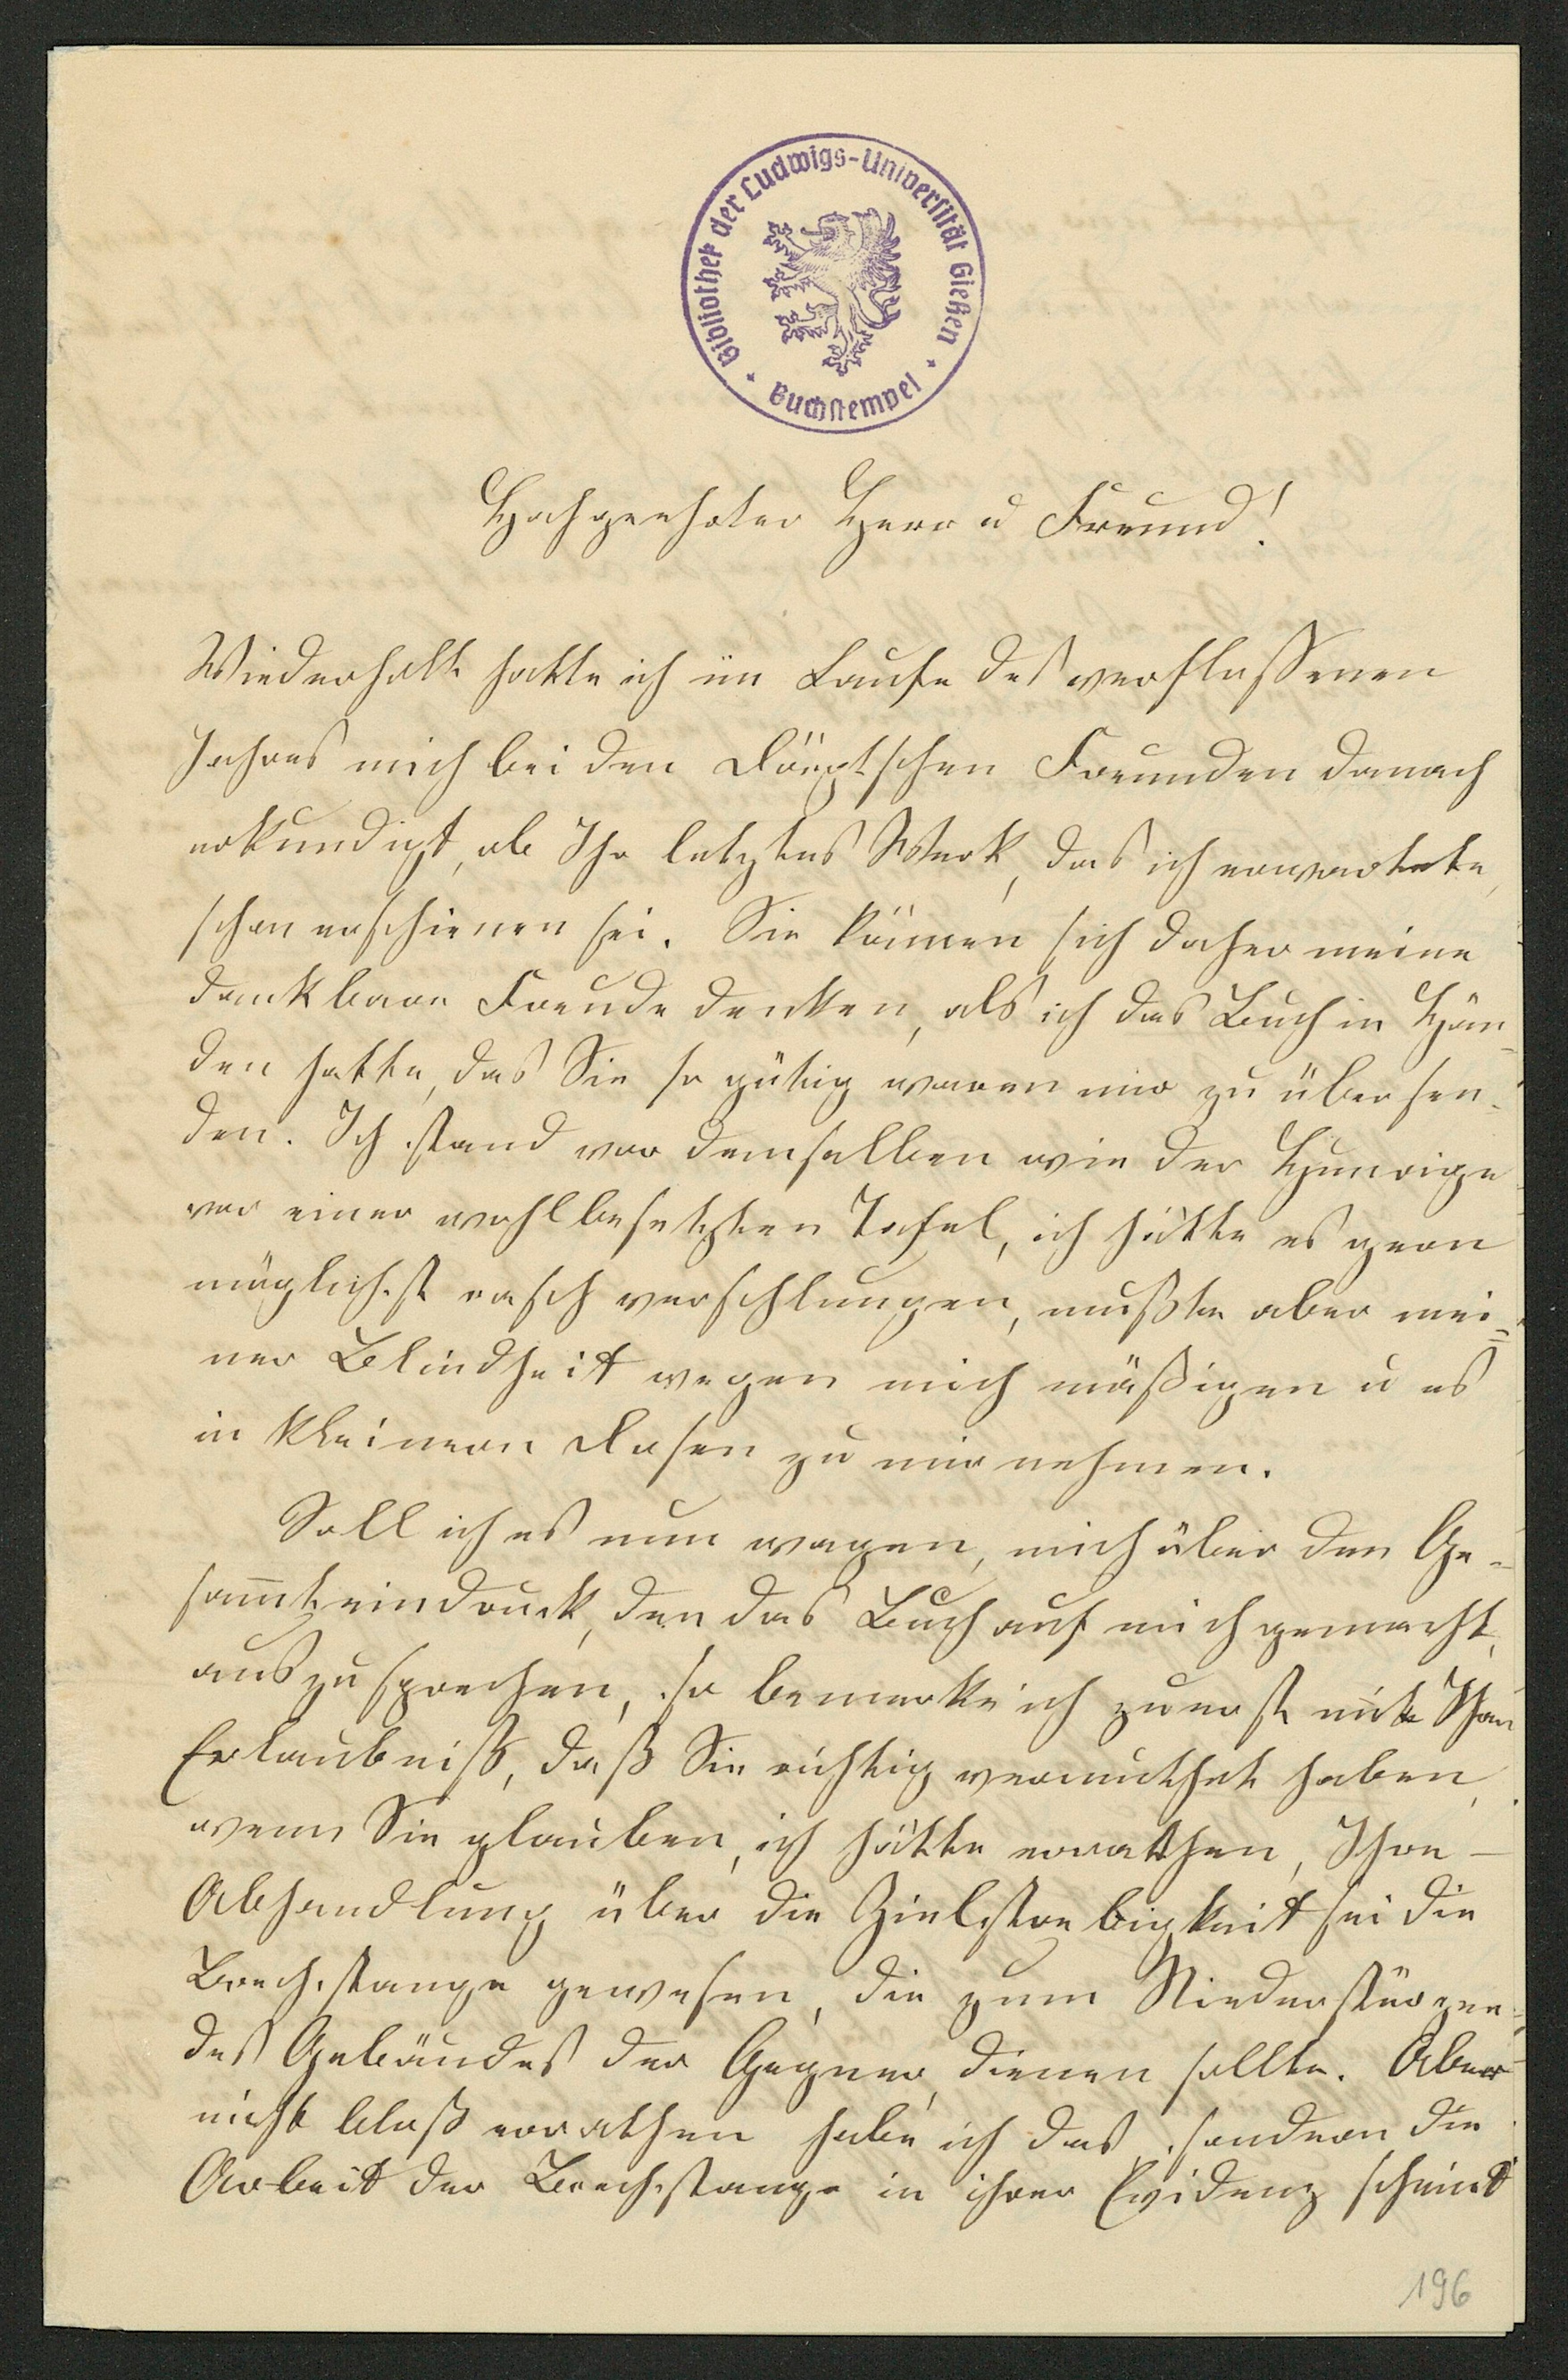 Bibliothek der Ludwigs-Universität Gießen
Buchstempel
Hochgeehrter Herr u Freund!
Wiederholt hatte ich im Laufe des verflossenen
Jahres mich bei den Dörptschen Freunden danach
erkundigt, ob Ihr letztes Werk, das ich erwartete,
schon erschienen sei. Sie können sich daher meine
dankbare Freude denken, als ich das Buch in Hän-
den hatte, das Sie so gütig waren mir zu übersen-
den. Ich stand vor demselben wie der Hungrige
vor einer wohlbesetzten Tafel, ich hätte es gern
möglichst rasch verschlungen, mußte aber mei-
ner Blindheit wegen mich mäßigen u es
in kleinern Dosen zu mir nehmen.
Soll ich es nun wagen, mich über den Ge-
sam̄teindruck, den das Buch auf mich gemacht,
auszusprechen, so bemerke ich zuerst mit Ihrer
Erlaubniß, daß Sie richtig vermuthet haben,
wenn Sie glauben, ich hätte errathen, Ihre
Abhandlung über die Zielstrebigkeit sei die
Brechstange gewesen, die zum Niederstürzen
des Gebäudes der Gegner dienen sollte. Aber
nicht bloß errathen habe ich das, sondern die
Arbeit der Brechstange in ihrer Evidenz scheint
196